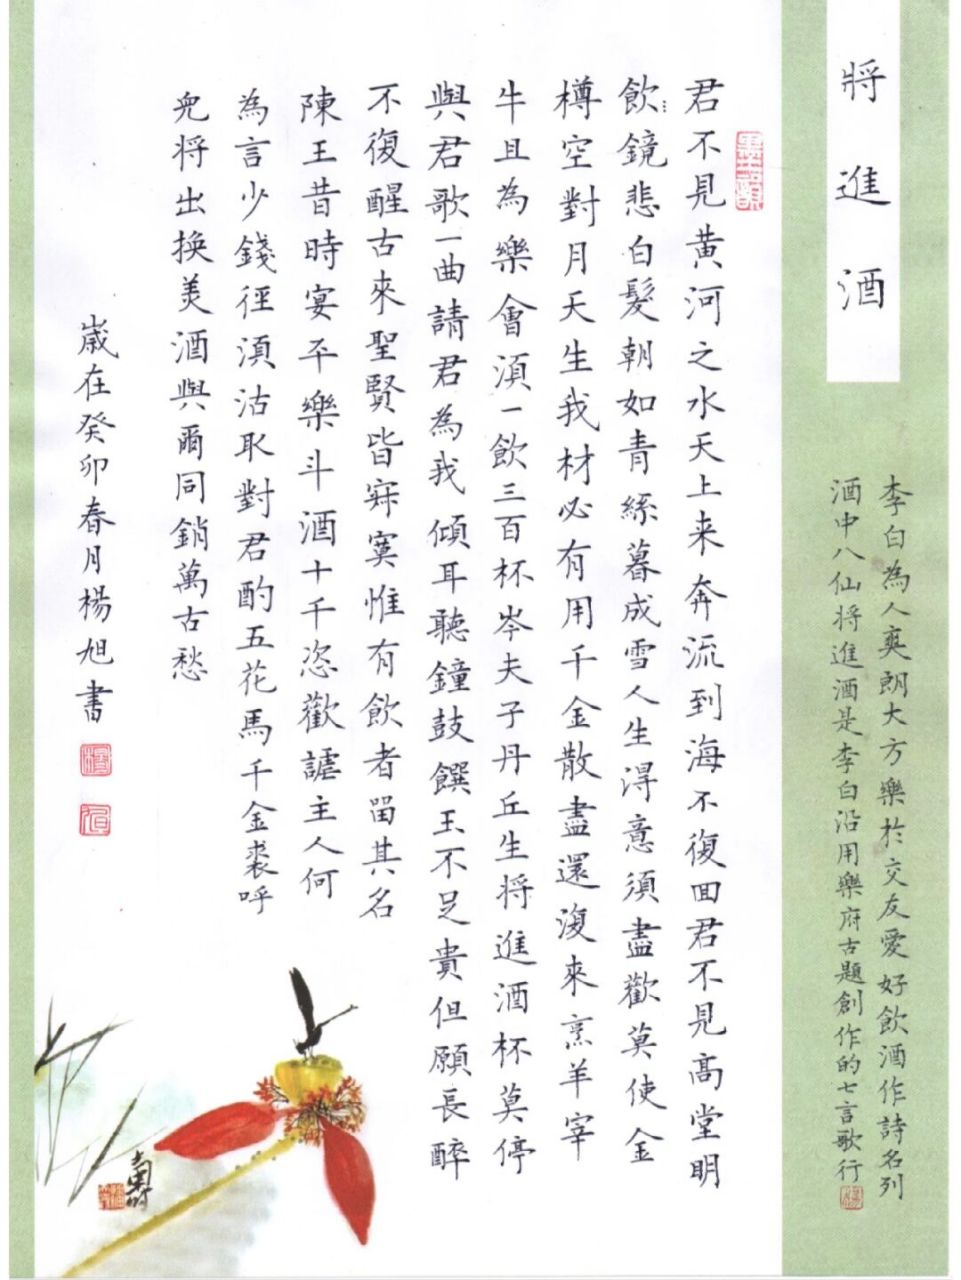 將進酒
李白為人爽朗大方樂於交友愛好飲酒作詩名列
酒中八仙将進酒是李白沿用樂府古題創作的七言歌行
墨韻
君不見黄河之水天上来奔流到海不復回君不見高堂明
飲鏡悲白髮朝如青絲暮成雪人生得意須盡歡莫使金
樽空對月天生我材必有用千金散盡還復來烹羊宰
牛且為樂會須一飲三百杯岑夫子丹丘生将進酒杯莫停
與君歌一曲請君為我傾耳聽鐘鼓饌玉不足貴但願長醉
不復醒古來聖賢皆寂寞惟有飲者留其名
陳王昔時宴平樂斗酒十千恣歡謔主人何
為言少錢徑須沽取對君酌五花馬千金裘呼
兒将出換美酒與爾同銷萬古愁
歲在癸卯春月楊旭書
楊
旭